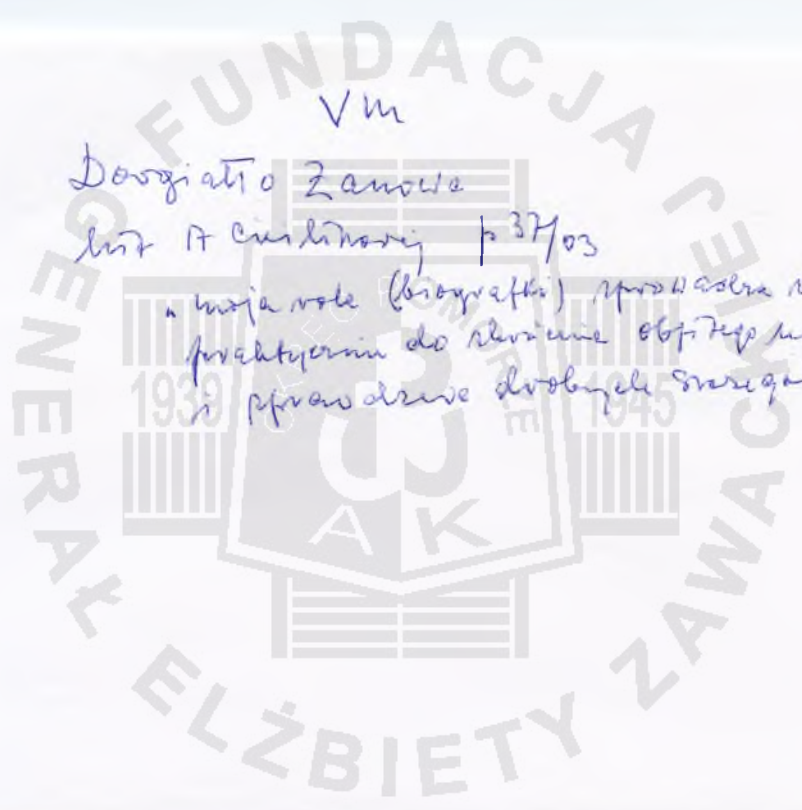 VM
Dowgiałło Zanowa
list A Cieślikowej p 37/03
"moja rola (biografki) sprowadza
praktycznie do skrócenia objętego
i sprawdzenie drobnych szczegó
FUNDACJA JENERAŁ ELŻBIETY ZAWACKIEJ
1939 1945
POMORZE
AK